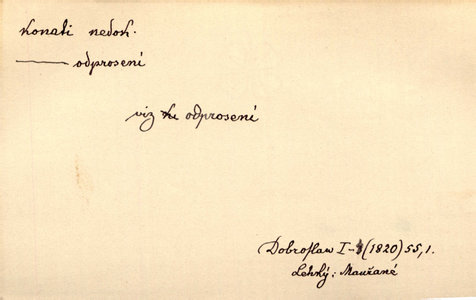 Konati nedok.
——— odprosení
viz odprosení
Dobroslaw I- (1820) 55,1.
Lehký: Maužané